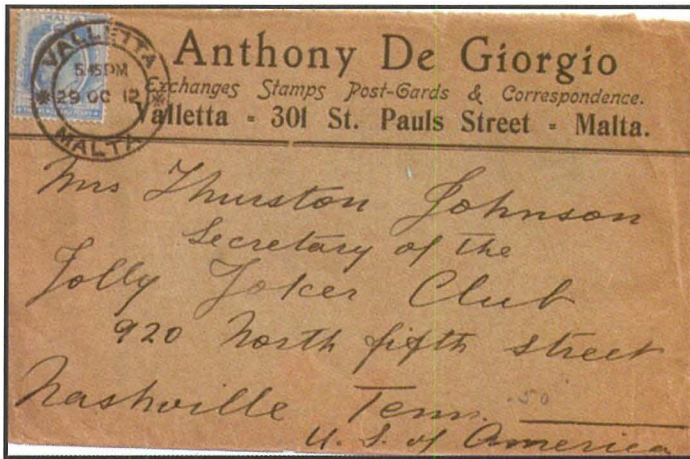 VALLETTA
5.45PM
29 OC 12
MALTA
Anthony De Giorgio
Exchanges Stamps Post-Cards & Correspondence.
Valletta - 301 St. Pauls Street - Malta.
Mrs Thurston Johnson
Secretary of the
Jolly Joker Club
920 North fifth street
Nashville Tenn.
.50
U. S. of America